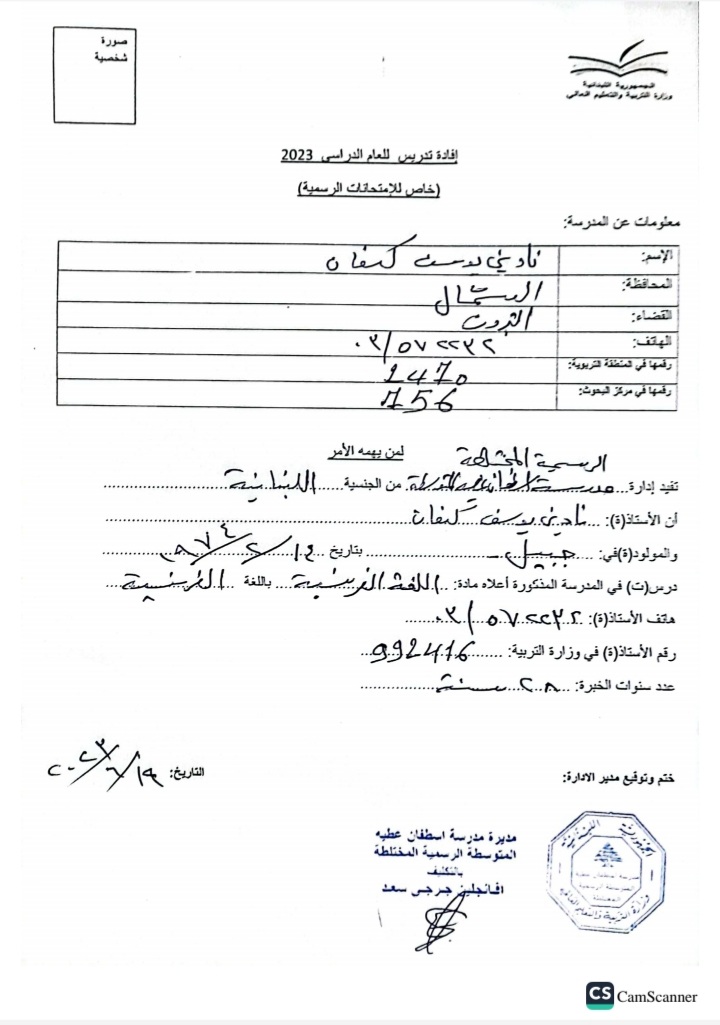 صورة
شخصية
الجمهورية اللبنانية
وزارة التربية والتعليم العالي
إفادة تدريس للعام الدراسي 2023
(خاص للإمتحانات الرسمية)
معلومات عن المدرسة:
الإسم: نادين يوسف كنعان
المحافظة: الشمال
القضاء: البترون
الهاتف: ٠٣/٥٧٢٢٣٢
رقمها في المنطقة التربوية: 1470
رقمها في مركز البحوث: 756
لمن يهمه الأمر
الرسمية المختلطة
تفيد إدارة... مدرسة اسطفان عطيه المتوسطة من الجنسية..... اللبنانية
أن الأستاذ(ة): ... نادين يوسف كنعان
والمولود(ة)في: ... جبيل ... بتاريخ ١٤/٢/١٩٧٤
درس(ت) في المدرسة المذكورة أعلاه مادة: .. اللغة الفرنسية .. باللغة .. الفرنسية
هاتف الأستاذ(ة): ٠٣/٥٧٢٢٣٢
رقم الأستاذ(ة) في وزارة التربية: ...... 992416
عدد سنوات الخبرة: ... ٢٨ سنة
ختم وتوقيع مدير الادارة:
التاريخ: ١٩/٦/٢٠٢٣
مديرة مدرسة اسطفان عطيه
المتوسطة الرسمية المختلطة
بالتكليف
افانجلين جرجي سعد
الجمهورية اللبنانية
مدرسة اسطفان عطيه
المتوسطة الرسمية
المختلطة
وزارة التربية والتعليم العالي
CS CamScanner